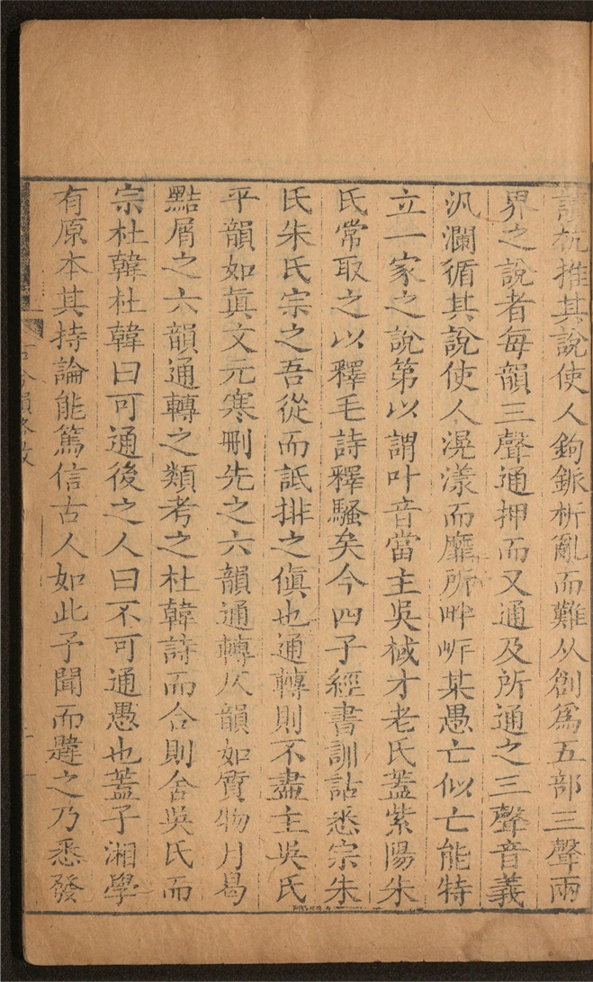 說杭推其說使人鉤鈲析亂而難从創爲五部三聲兩
界之說者每韻三聲通押而又通及所通之三聲音義
汎瀾循其說使人滉漾而靡所畔岸某愚亡似亡能特
立一家之說第以謂叶音當主吳棫才老氏蓋紫陽朱
氏常取之以釋毛詩釋騷矣今四子經書訓詁悉宗朱
氏朱氏宗之吾從而詆排之傎也通轉則不盡主吳氏
平韻如眞文元寒刪先之六韻通轉仄韻如質物月曷
黠屑之六韻通轉之類考之杜韓詩而合則舍吳氏而
宗杜韓杜韓曰可通後之人曰不可通愚也蓋子湘學
有原本其持論能篤信古人如此予聞而韙之乃悉發
古今韻